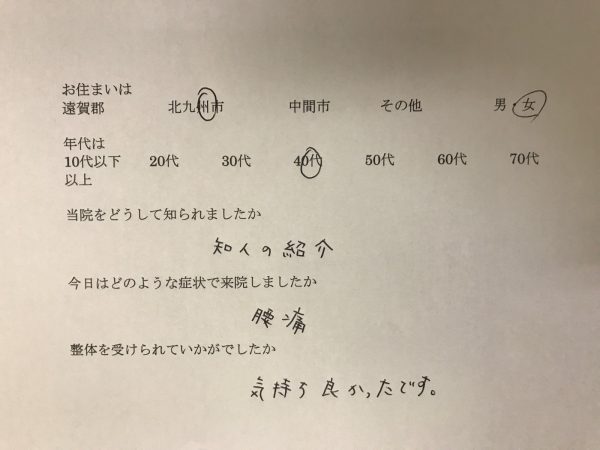 お住まいは
遠賀郡 北九州市 中間市 その他 男・女
年代は
10代以下 20代 30代 40代 50代 60代 70代
以上
当院をどうして知られましたか
知人の紹介
今日はどのような症状で来院しましたか
腰痛
整体を受けられていかがでしたか
気持ち良かったです。